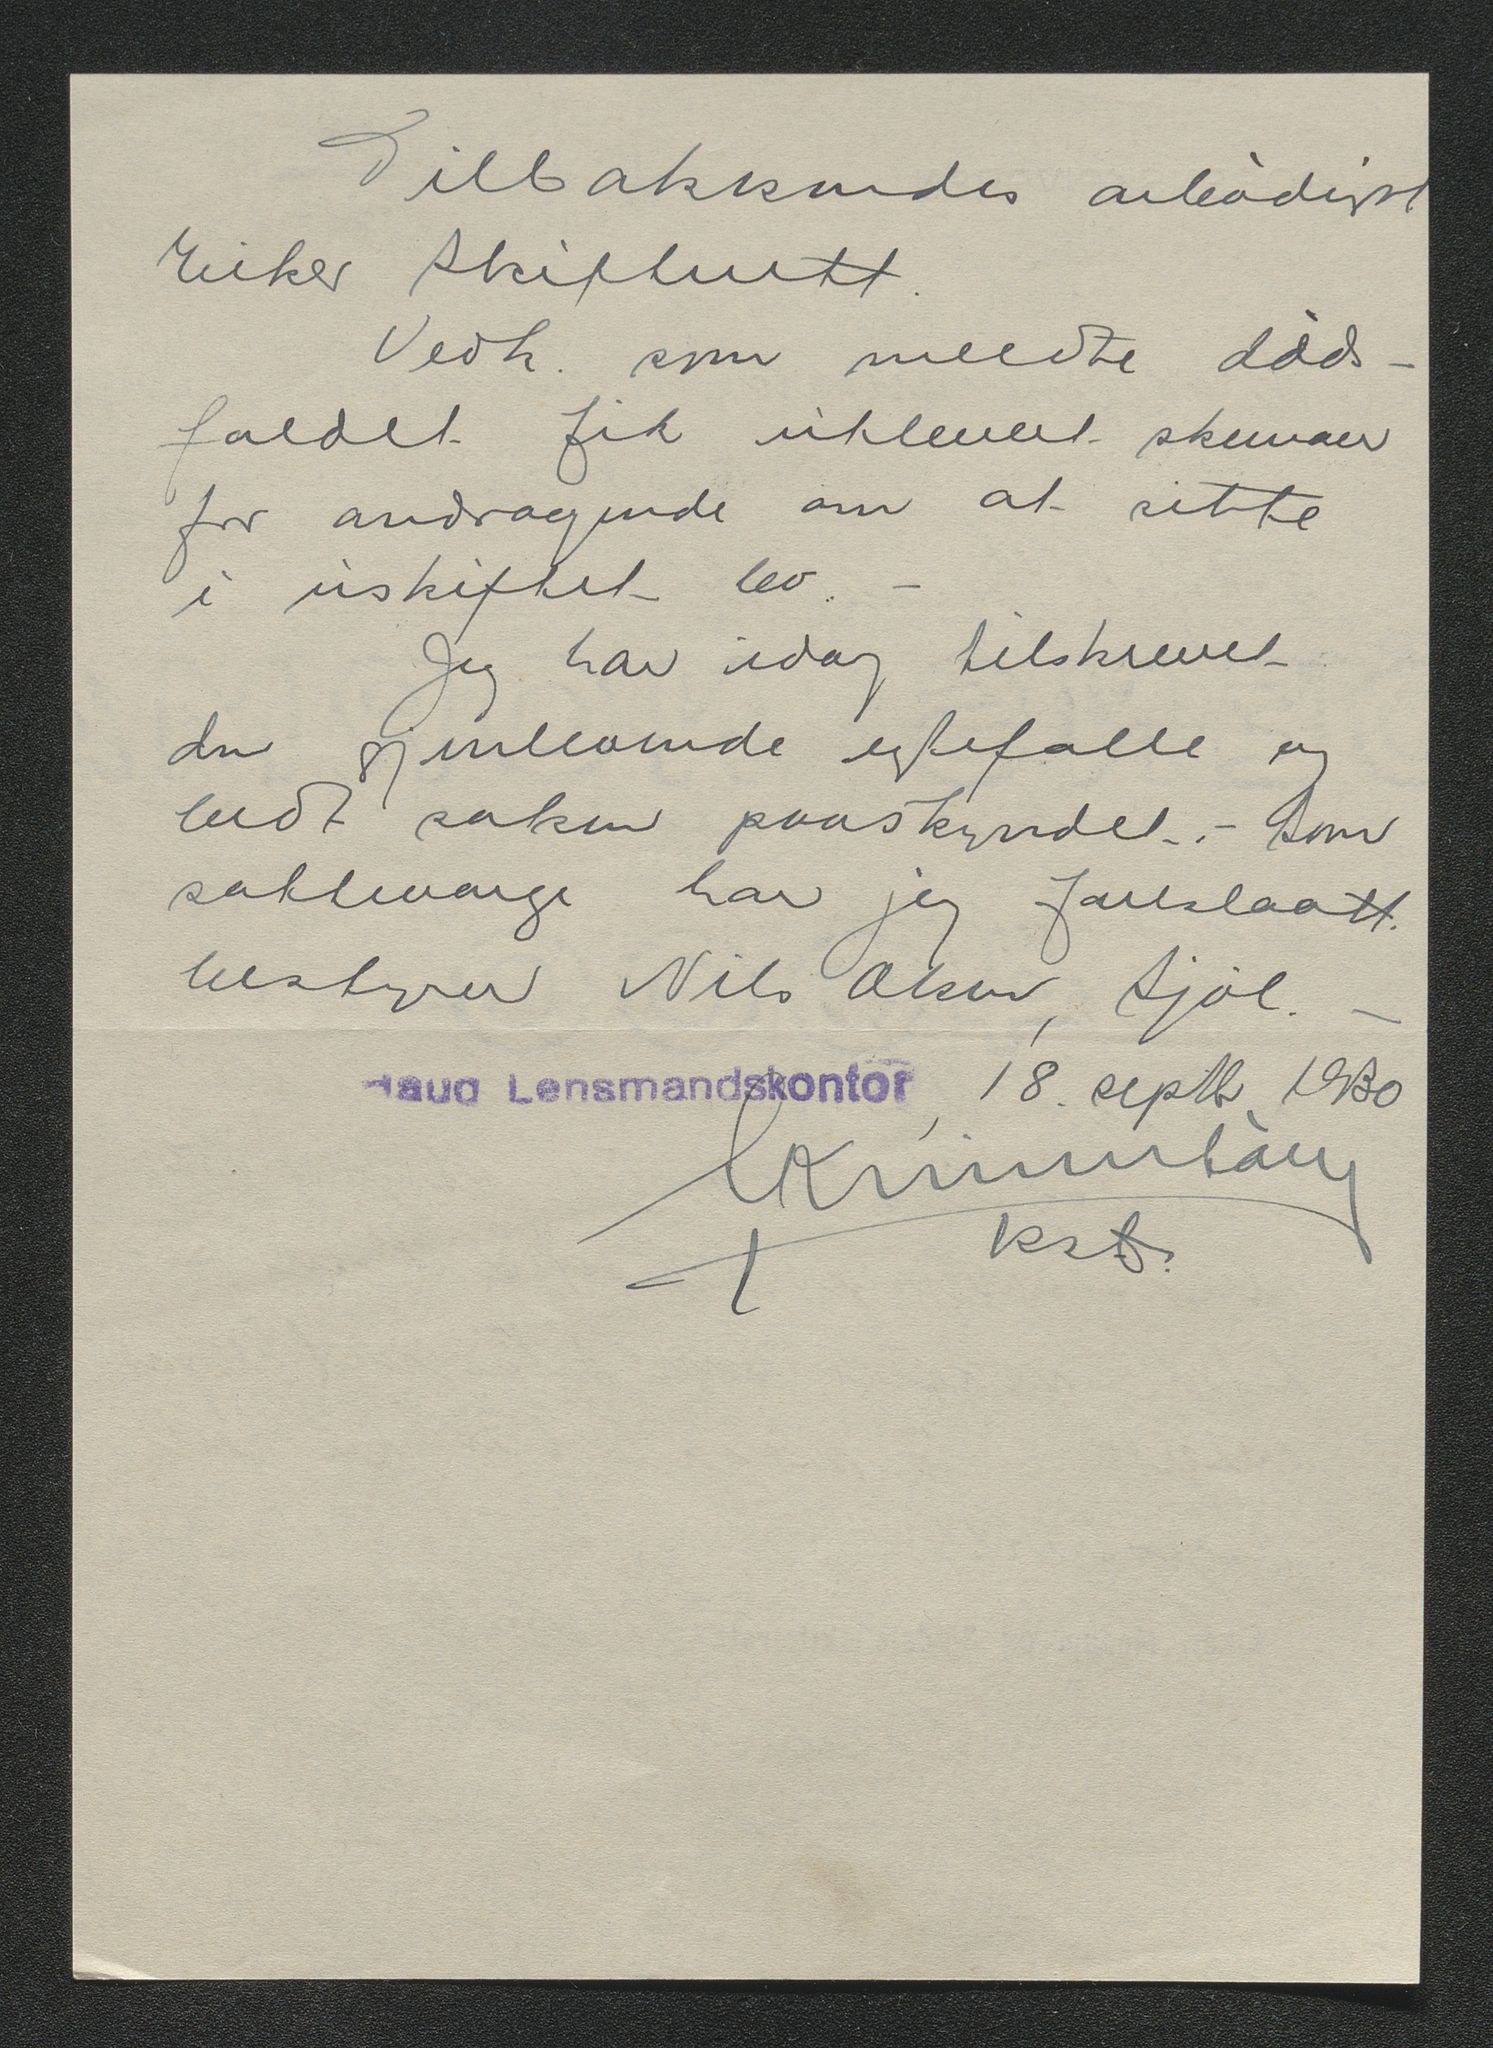 Tilbakesendes ærbødigst
Eiker Skifterett.
Vedk. som meldte døds-
faldet fik utlevert skemaer
for andragende om at sitte
i uskiftet bo. -
Jeg har idag tilskrevet
den gjenlevende egtefælle og
bedt saken paaskyndet. - Som
setteverge har jeg foreslaatt
bestyrer Nils Oksen, Sjøl. -
Haug Lensmandskontor, 18. septb. 1930
kst.